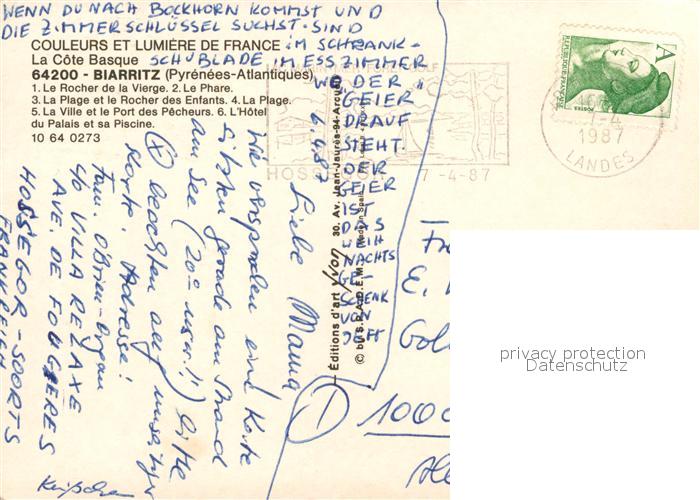 WENN DU NACH BOCKHORN KOMMST UND
DIE ZIMMERSCHLÜSSEL SUCHST. SIND
IM SCHRANK-
SCHUBLADE IM ESSZIMMER
WO DER "
GEIER
DRAUF
STEHT.
DER
GEIER
IST
DAS
WEIH
NACHTS
GE-
SCHENK
VON
JEFF
COULEURS ET LUMIÈRE DE FRANCE
La Côte Basque
64200 - BIARRITZ (Pyrénées-Atlantiques)
1. Le Rocher de la Vierge. 2. Le Phare.
3. La Plage et le Rocher des Enfants. 4. La Plage.
5. La Ville et le Port des Pêcheurs. 6. L'Hôtel
du Palais et sa Piscine.
10 64 0273
6.4.87
Liebe Mama
Wir versprachen eine Karte
sitzen gerade am Strand
am See (20° unser!!) bitte
beachten auf unseitiger
Karte. Adresse:
Fam. O'Brien-
46 VILLA RELAXE
AVE. DE FOUGERES
HOSSEGOR - SOORTS
FRANKREICH
Editions d'art YVON 30, Av. Jean-Jaurès-94-Arcueil
© by S.P.A.D.E.M. Made in Spain
HOSS
7-4-87
RÉPUBLIQUE FRANÇAISE
A
POSTES
1987
LANDES
E.
1000
privacy protection
Datenschutz